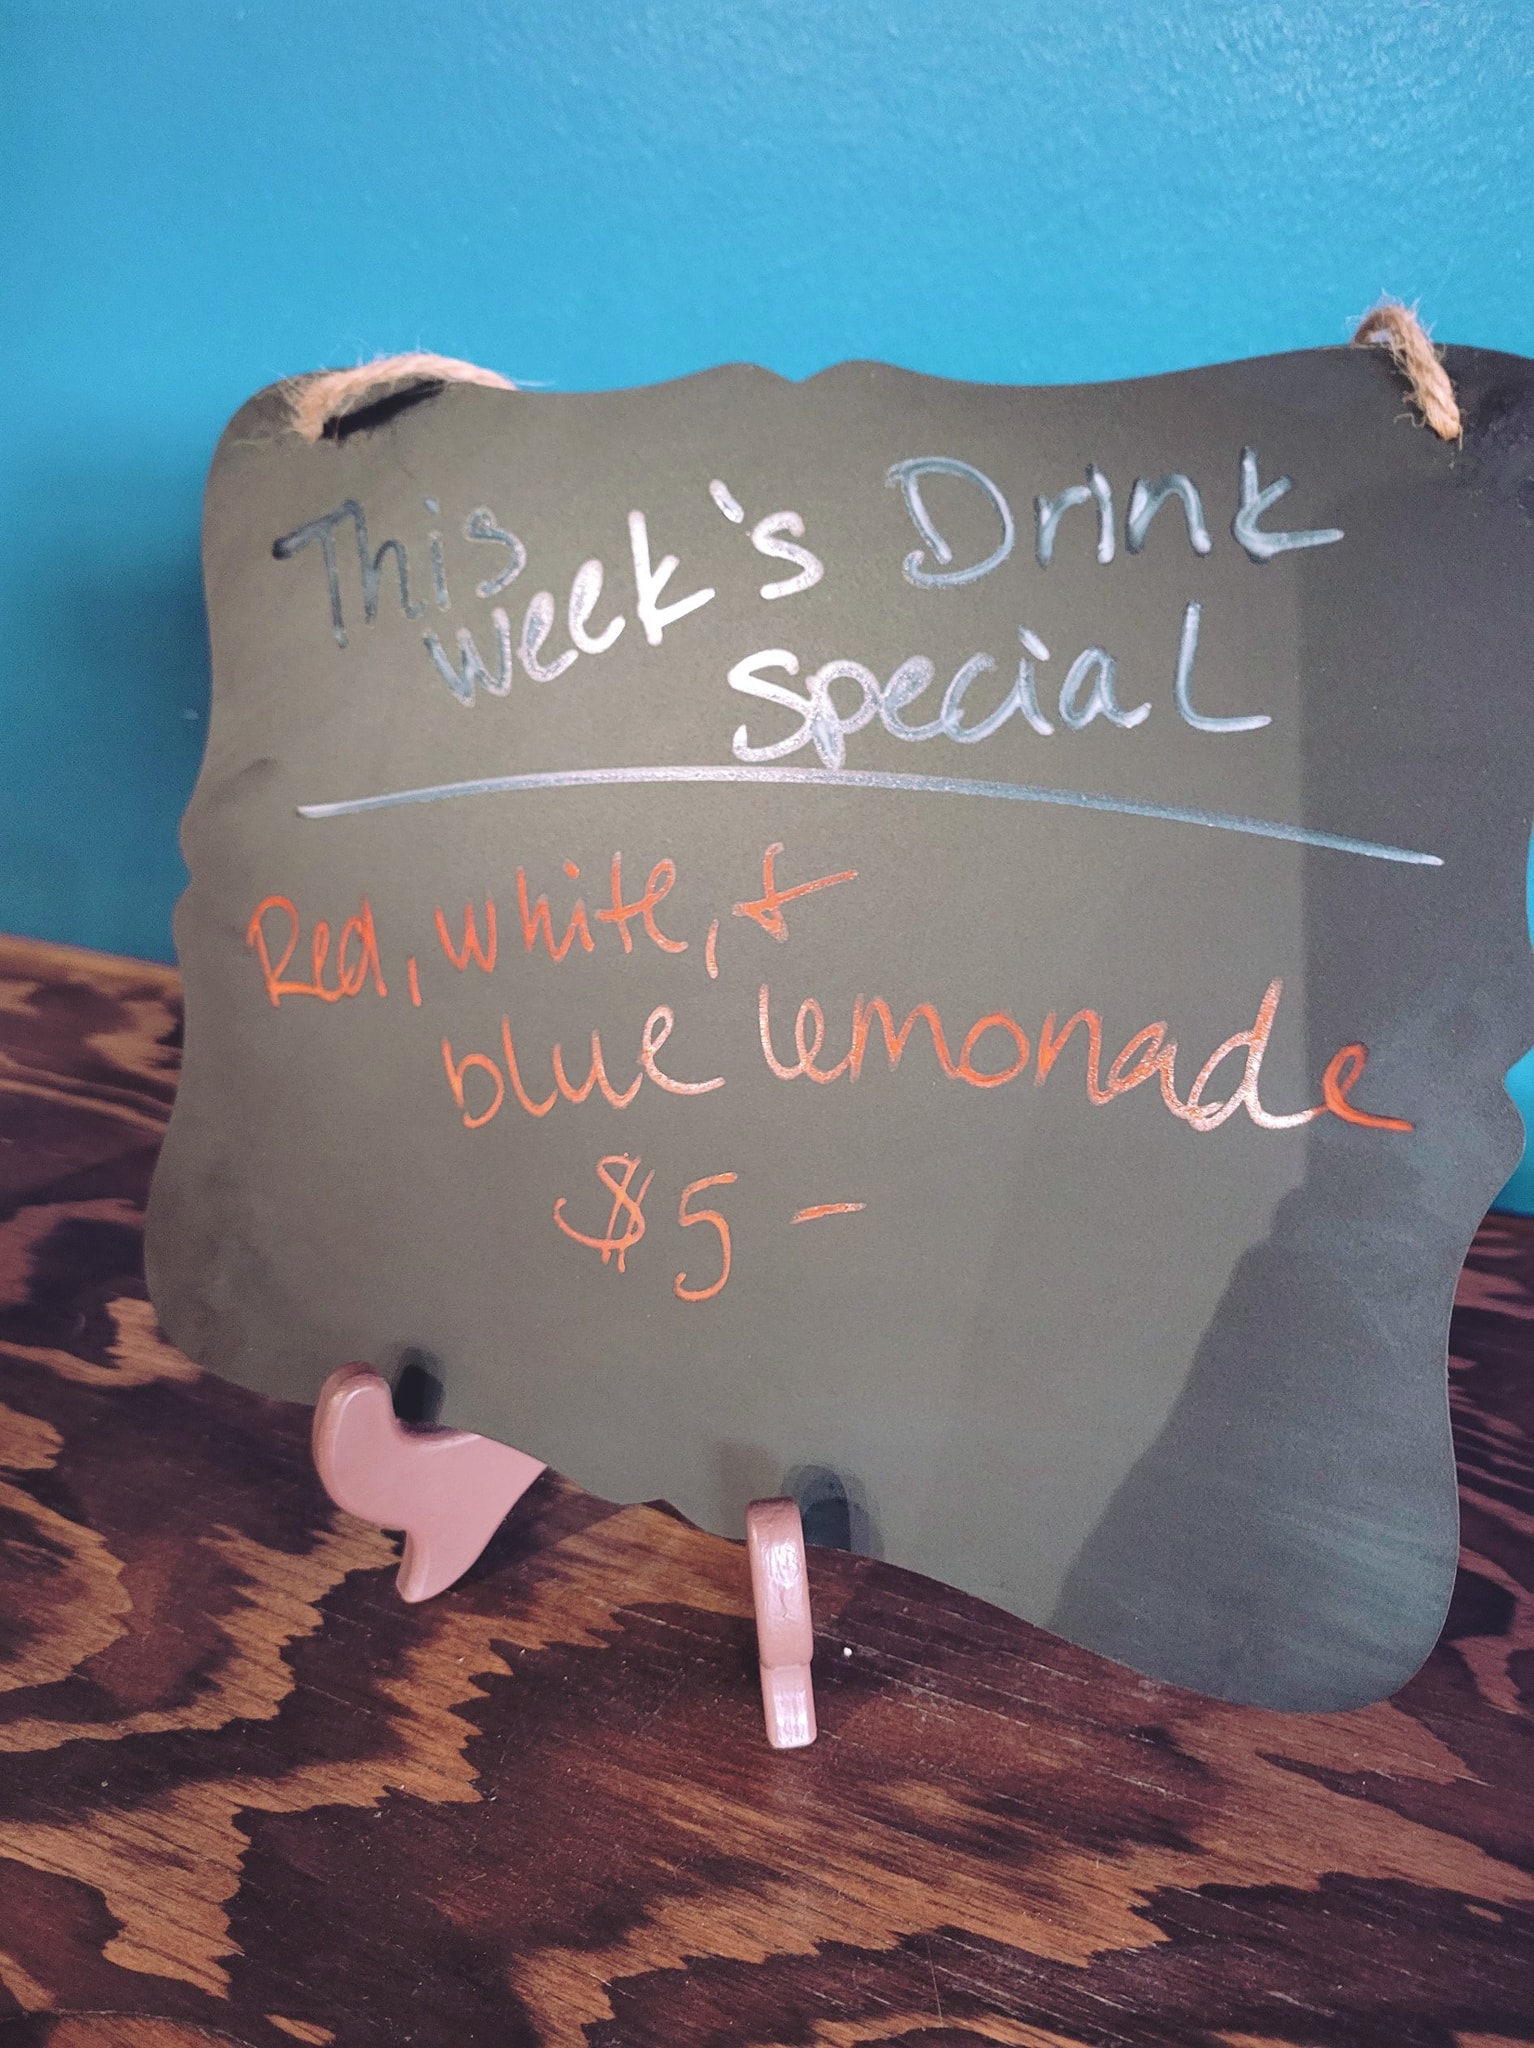 This week's Drink
Special
Red, white, &
blue lemonade
$5-